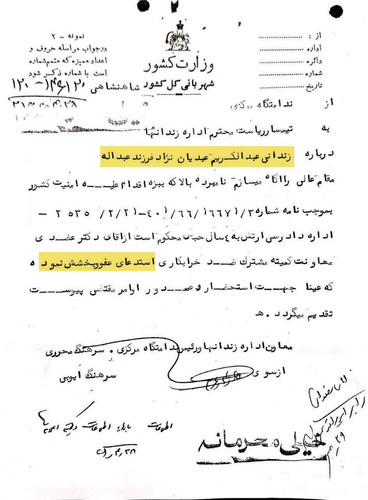 نمونه - ۲
در جواب مراسله حروف و
اعداد ممیزه که متمم شماره
است با شماره ذکر شود
شاهنشاهی
وزارت کشور
شهربانی کل کشور
از :
اداره
دائره
شماره
تاریخ
از ندامتگاه مرکزی
به تیمسار ریاست محترم اداره زندانها
درباره زندانی عبدالکریم عبدیان نژاد فرزند عبداله
مقام عالی را آگاه میسازم نامبرده بالا که ببزه اقدام علیه امنیت کشور
بموجب نامه شماره ۳/۱۶۶۷۱/۶۶/۴۰۱-۲/۲۱-۲۵۳۵
اداره دادرسی ارتش به ۴ سال حبس محکوم است از آقای دکتر عضدی
معاونت کمیته مشترک ضد خرابکاری استدعای عفو و بخشش نموده
که عینا جهت استحضار و صدور اوامر مقتضی پیوست
تقدیم میگردد. ه
معاون اداره زندانها و رئیس ندامتگاه مرکزی. سرهنگ محرری
از سوی سرهنگ ایوبی
خیلی محرمانه